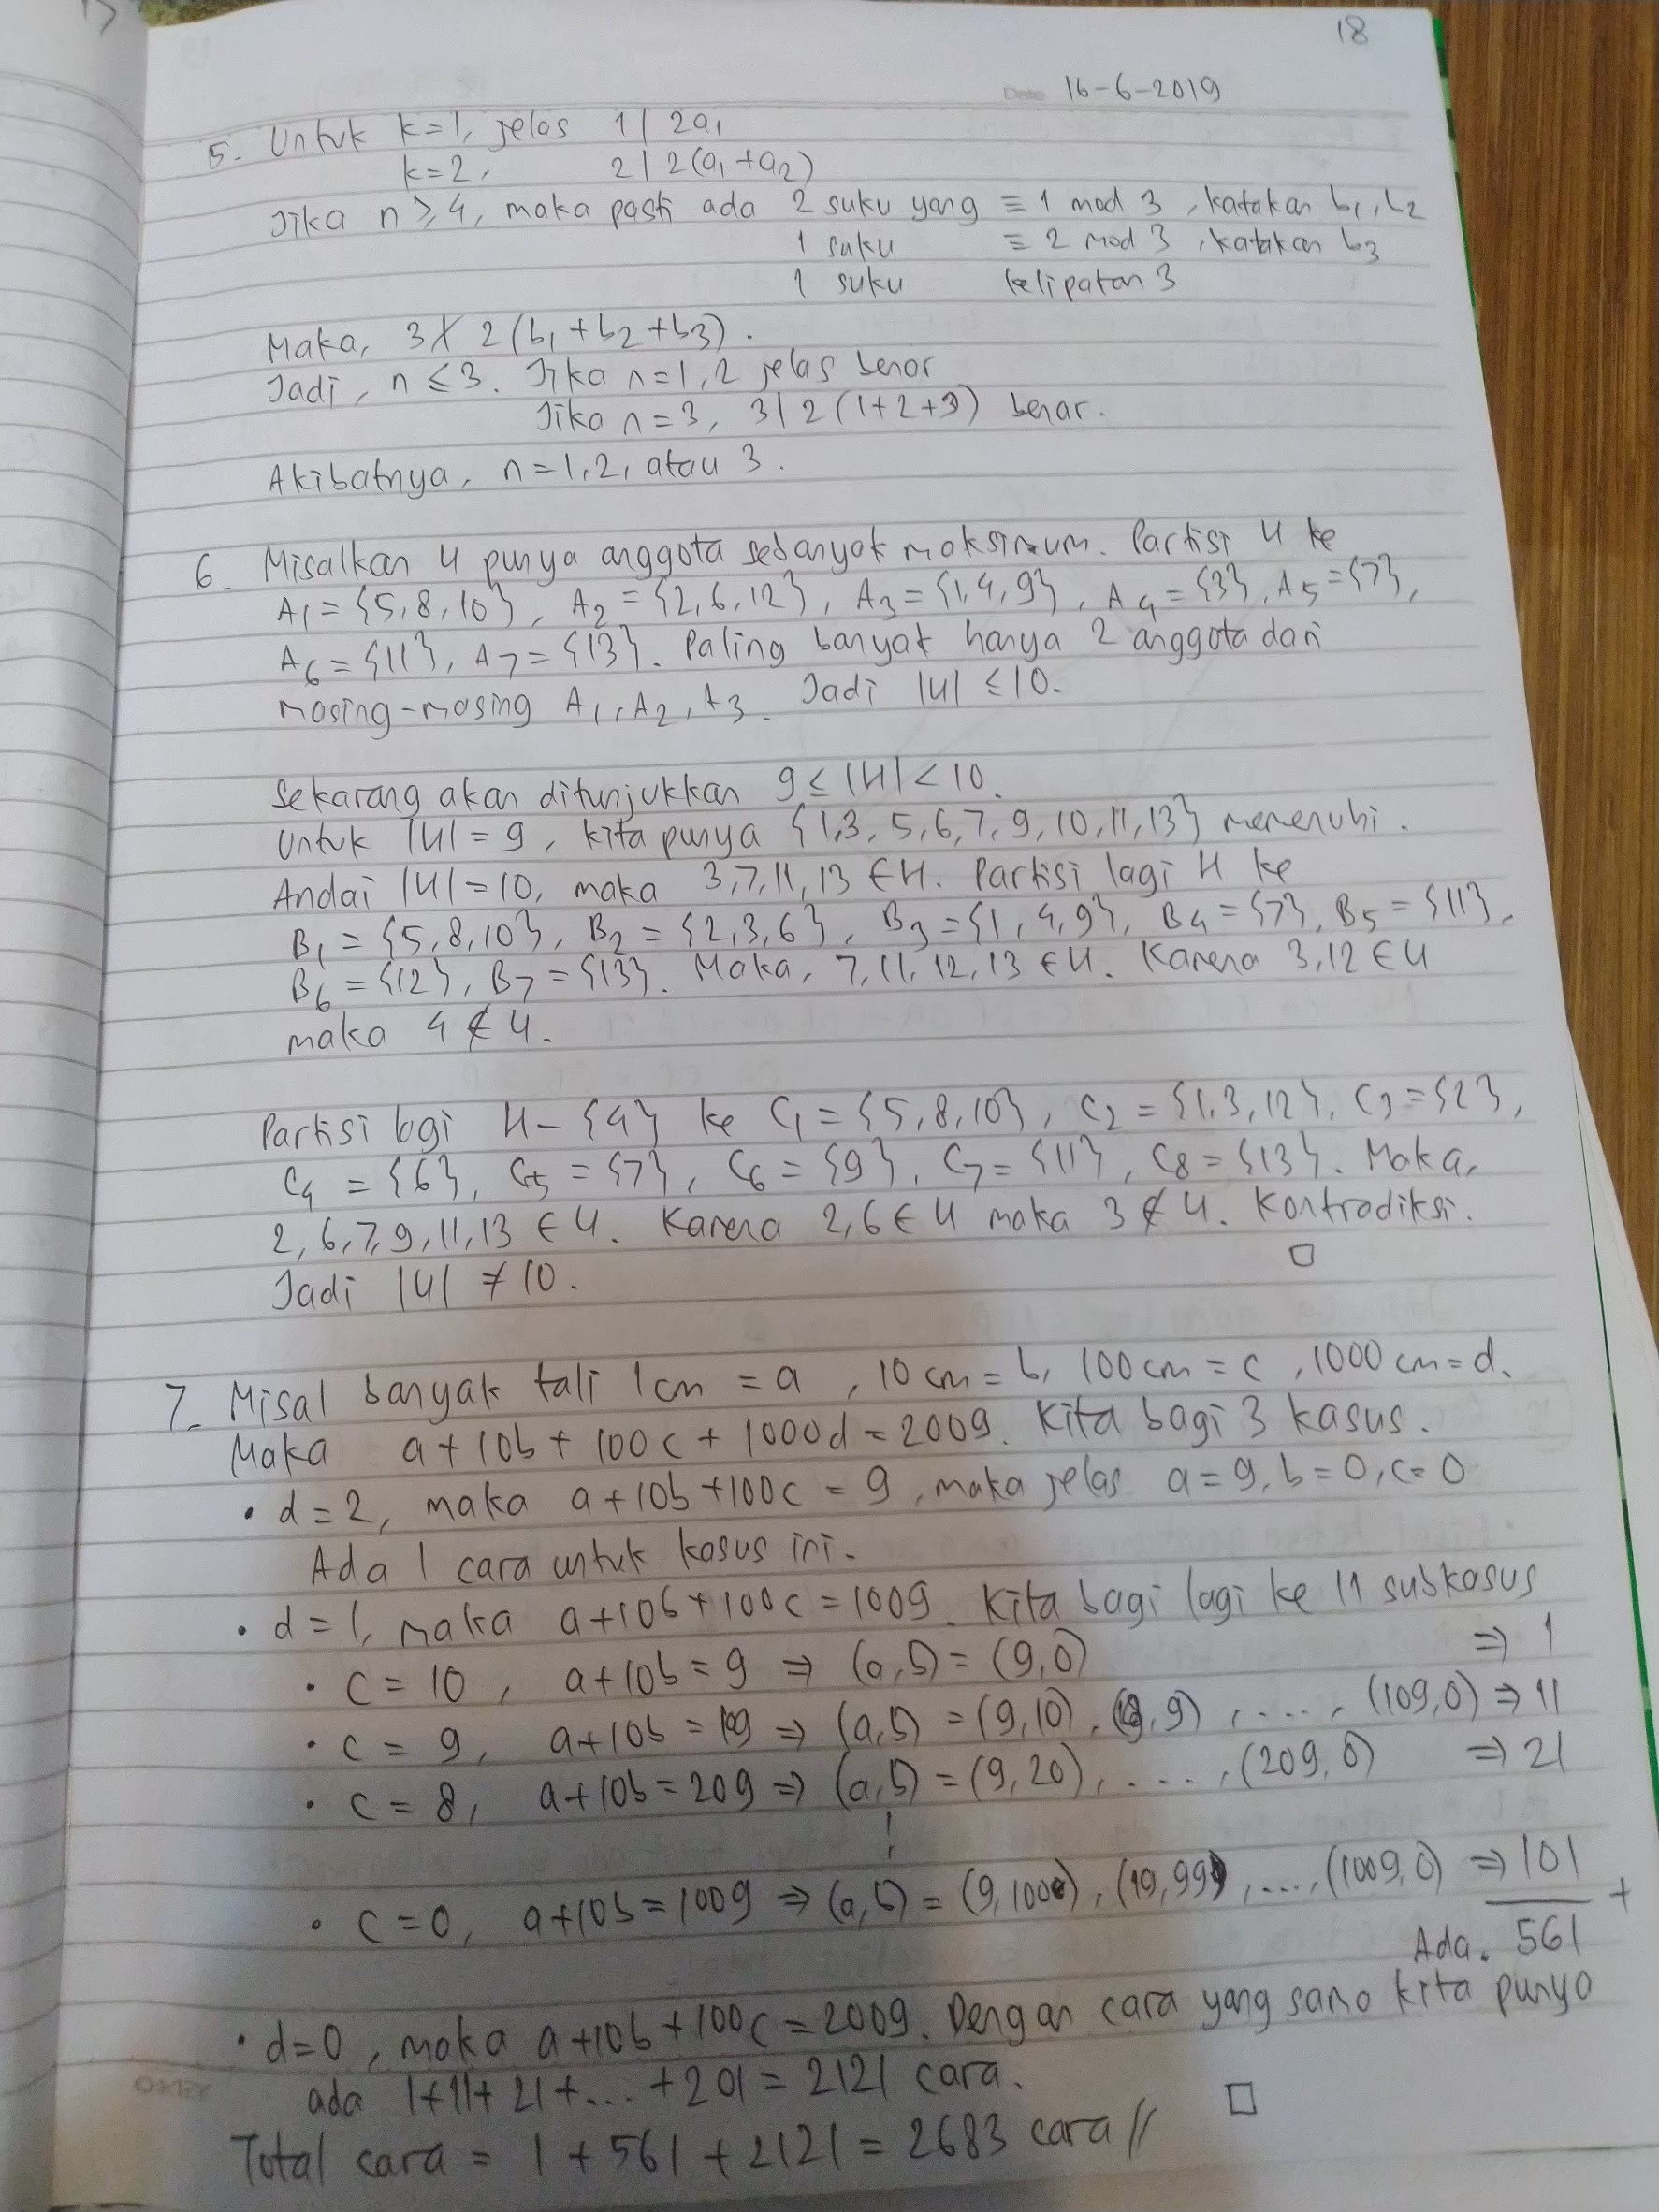 18
Date 16-6-2019
5. Untuk k=1, jelas 1 | 2a₁
k=2, 2 | 2(a₁+a₂)
Jika n ≥ 4, maka pasti ada 2 suku yang ≡ 1 mod 3, katakan b₁, b₂
1 suku ≡ 2 mod 3, katakan b₃
1 suku kelipatan 3
Maka, 3 ∤ 2(b₁+b₂+b₃).
Jadi, n ≤ 3. Jika n=1,2 jelas benar
Jika n=3, 3 | 2(1+2+3) benar.
Akibatnya, n=1,2, atau 3.
6. Misalkan U punya anggota sebanyak maksimum. Partisi U ke
A₁ = {5,8,10}, A₂ = {2,6,12}, A₃ = {1,4,9}, A₄ = {3}, A₅ = {7},
A₆ = {11}, A₇ = {13}. Paling banyak hanya 2 anggota dari
masing-masing A₁, A₂, A₃. Jadi |U| ≤ 10.
Sekarang akan ditunjukkan 9 ≤ |U| < 10.
Untuk |U| = 9, kita punya {1,3,5,6,7,9,10,11,13} memenuhi.
Andai |U| = 10, maka 3,7,11,13 ∈ U. Partisi lagi U ke
B₁ = {5,8,10}, B₂ = {2,3,6}, B₃ = {1,4,9}, B₄ = {7}, B₅ = {11},
B₆ = {12}, B₇ = {13}. Maka, 7,11,12,13 ∈ U. Karena 3,12 ∈ U
maka 4 ∉ U.
Partisi lagi U - {4} ke C₁ = {5,8,10}, C₂ = {1,3,12}, C₃ = {2},
C₄ = {6}, C₅ = {7}, C₆ = {9}, C₇ = {11}, C₈ = {13}. Maka,
2,6,7,9,11,13 ∈ U. Karena 2,6 ∈ U maka 3 ∉ U. Kontradiksi.
Jadi |U| ≠ 10. □
7. Misal banyak tali 1 cm = a, 10 cm = b, 100 cm = c, 1000 cm = d.
Maka a+10b+100c+1000d = 2009. Kita bagi 3 kasus.
• d=2, maka a+10b+100c = 9, maka jelas a=9, b=0, c=0
Ada 1 cara untuk kasus ini.
• d=1, maka a+10b+100c = 1009. Kita bagi lagi ke 11 subkasus
• c = 10, a+10b = 9 ⇒ (a,b) = (9,0) ⇒ 1
• c = 9, a+10b = 109 ⇒ (a,b) = (9,10), (19,9), ...., (109,0) ⇒ 11
• c = 8, a+10b = 209 ⇒ (a,b) = (9,20), ...., (209,0) ⇒ 21
⋮
• c = 0, a+10b = 1009 ⇒ (a,b) = (9,100), (19,99), ...., (1009,0) ⇒ 101
+
Ada. 561
• d=0, maka a+10b+100c = 2009. Dengan cara yang sama kita punya
ada 1+11+21+... +201 = 2121 cara.
Total cara = 1 + 561 + 2121 = 2683 cara // □